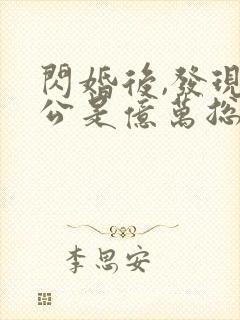 閃婚後,發現
公是億萬總
李思安